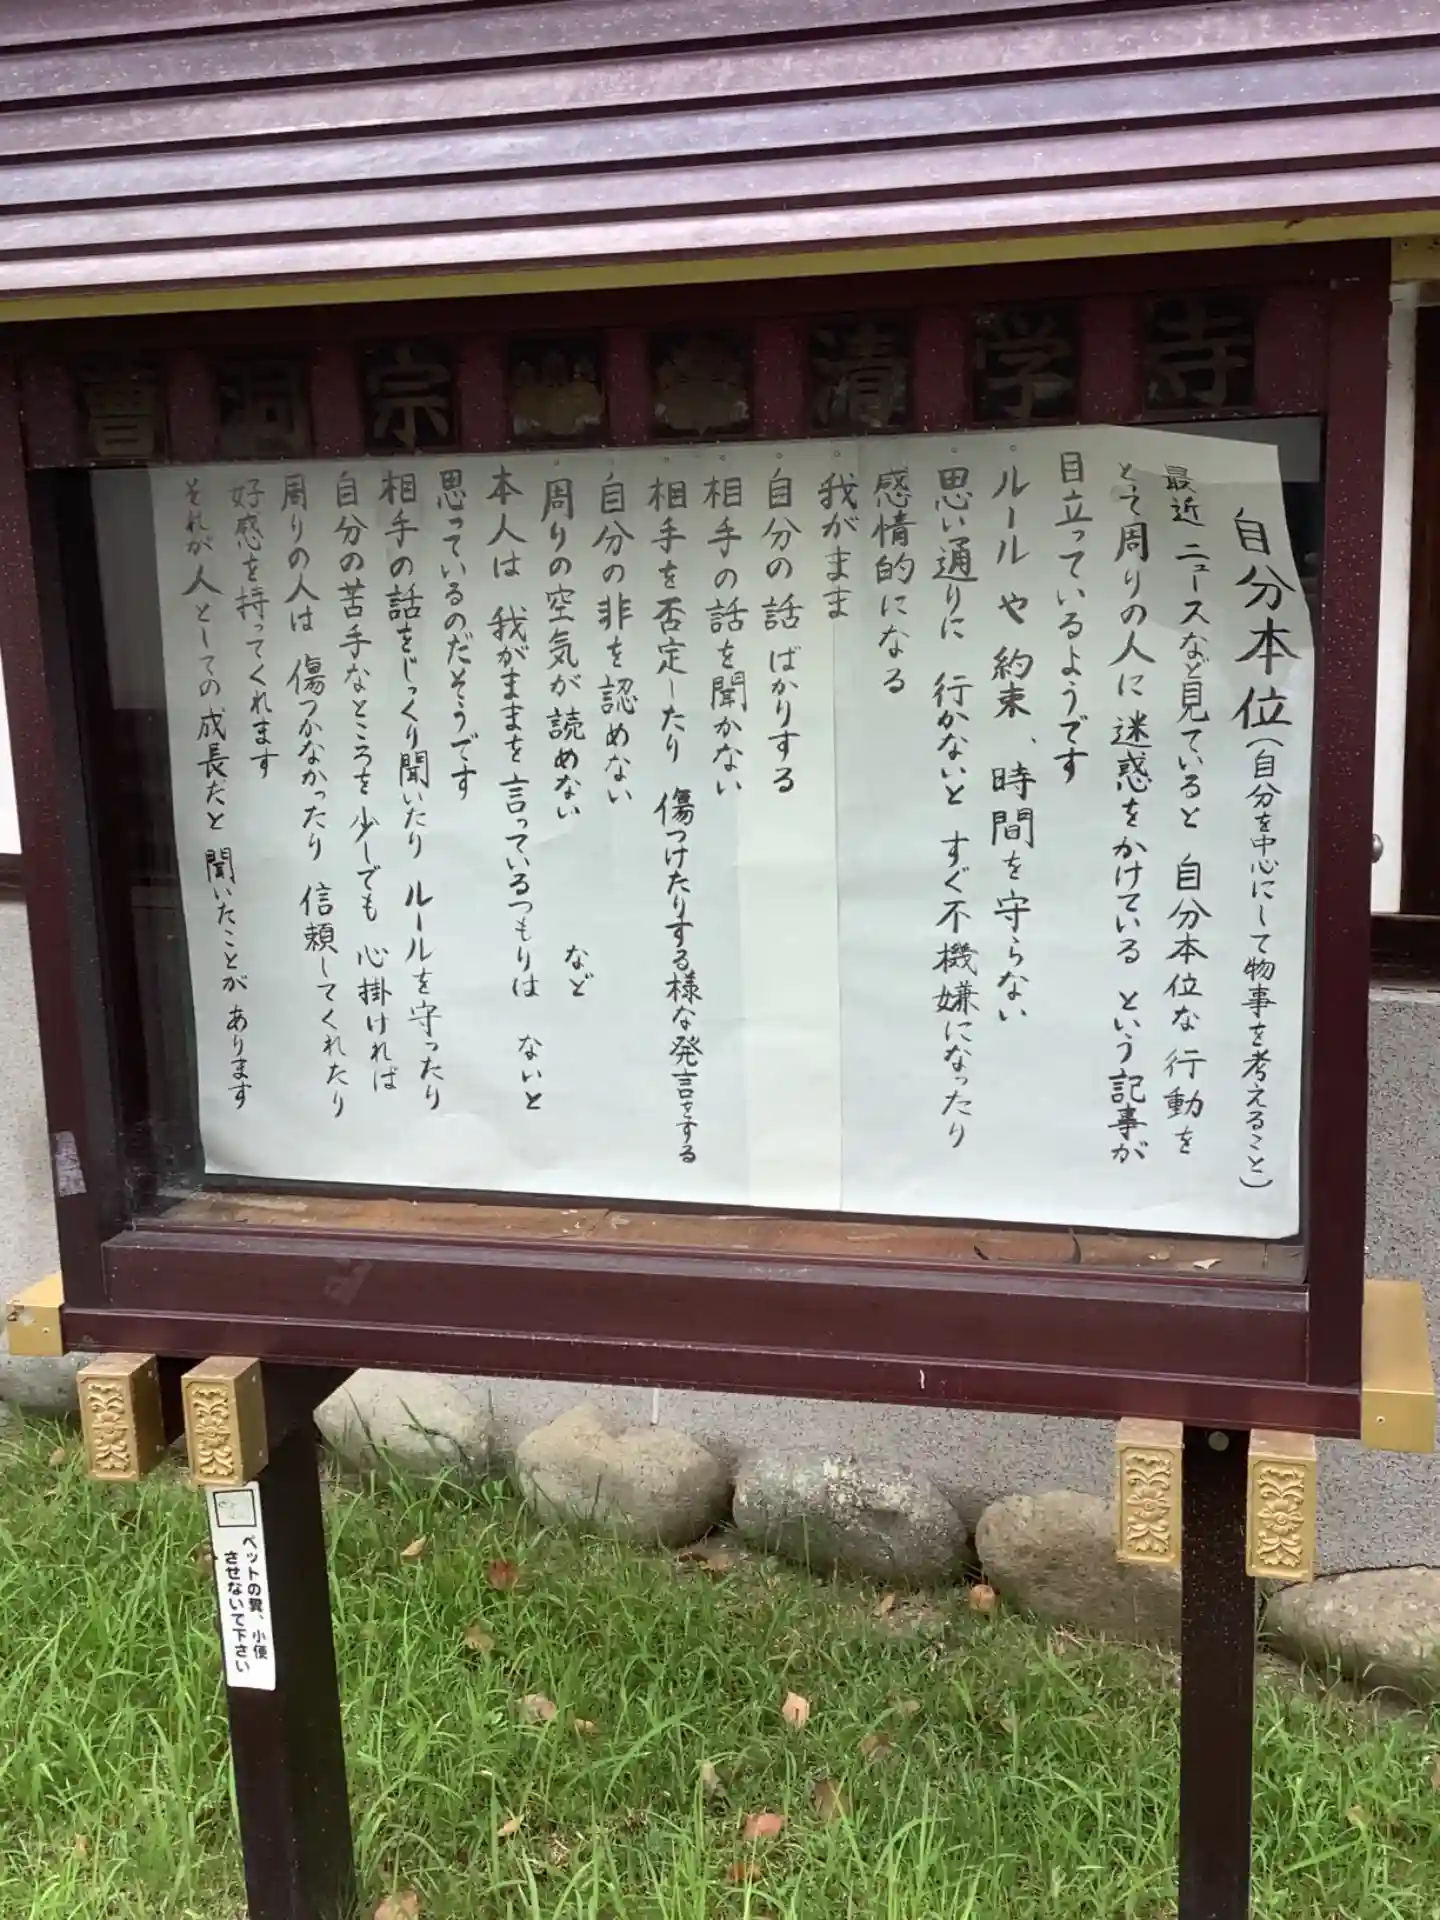 曹洞宗 清学寺
自分本位(自分を中心にして物事を考えること)
最近 ニュースなど見ていると 自分本位な行動を
とって周りの人に迷惑をかけている という記事が
目立っているようです
ルールや約束、時間を守らない
思い通りに行かないと すぐ不機嫌になったり
感情的になる
我がまま
自分の話ばかりする
相手の話を聞かない
相手を否定したり 傷つけたりする様な発言をする
自分の非を認めない
周りの空気が読めない など
本人は我がままを言っているつもりは ないと
思っているのだそうです
相手の話をじっくり聞いたり ルールを守ったり
自分の苦手なところを少しでも 心掛ければ
周りの人は 傷つかなかったり 信頼してくれたり
好感を持ってくれます
それが人としての成長だと 聞いたことが あります
ペットの糞、小便
させないで下さい